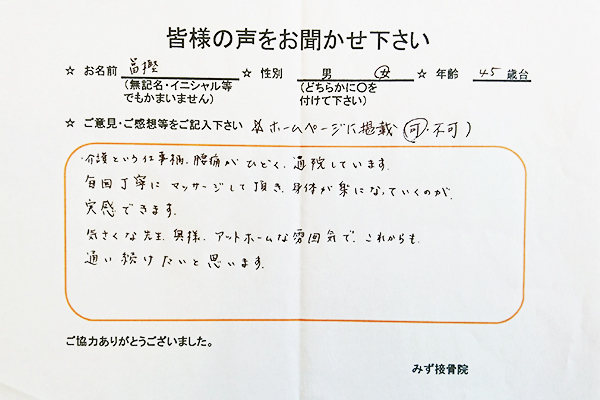 皆様の声をお聞かせ下さい
☆ お名前 富樫 ☆ 性別 男 女 ☆ 年齢 45 歳台
(無記名・イニシャル等でもかまいません) (どちらかに○を付けて下さい)
☆ ご意見・ご感想等をご記入下さい ※ホームページに掲載 (可・不可)
・介護という仕事柄、腰痛がひどく、通院しています。
毎回丁寧にマッサージして頂き、身体が楽になっていくのが、
実感できます。
気さくな先生、奥様、アットホームな雰囲気で、これからも
通い続けたいと思います。
ご協力ありがとうございました。
みず接骨院